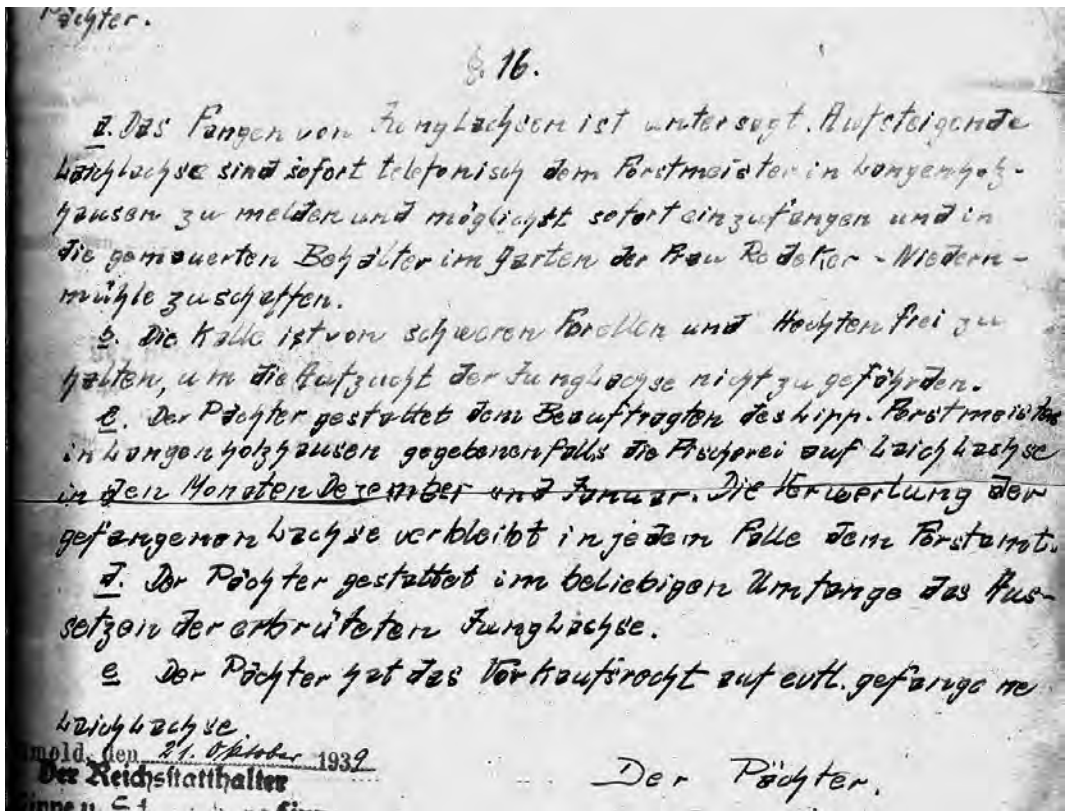 Pächter.
§. 16.
a. Das Fangen von Junglachsen ist untersagt. Aufsteigende
Laichlachse sind sofort telefonisch dem Forstmeister in Langenholz-
hausen zu melden und möglichst sofort einzufangen und in
die gemauerten Behälter im Garten der Frau Redeker - Niedern-
mühle zuschaffen.
b. Die Kalle ist von schweren Forellen und Hechten frei zu
halten, um die Aufzucht der Junglachse nicht zu gefährden.
c. Der Pächter gestattet dem Beauftragten des Lipp. Forstmeisters
in Langenholzhausen gegebenenfalls die Fischerei auf Laichlachse
in den Monaten Dezember und Januar. Die Verwertung der
gefangenen Lachse verbleibt in jedem Falle dem Forstamt.
d. Der Pächter gestattet im beliebigen Umfange das Aus-
setzen der erbrüteten Junglachse.
e Der Pächter hat das Vorkaufsrecht auf evtl. gefangene
Laichlachse
den 21. Oktober 1939
Der Reichsstatthalter
Der Pächter.